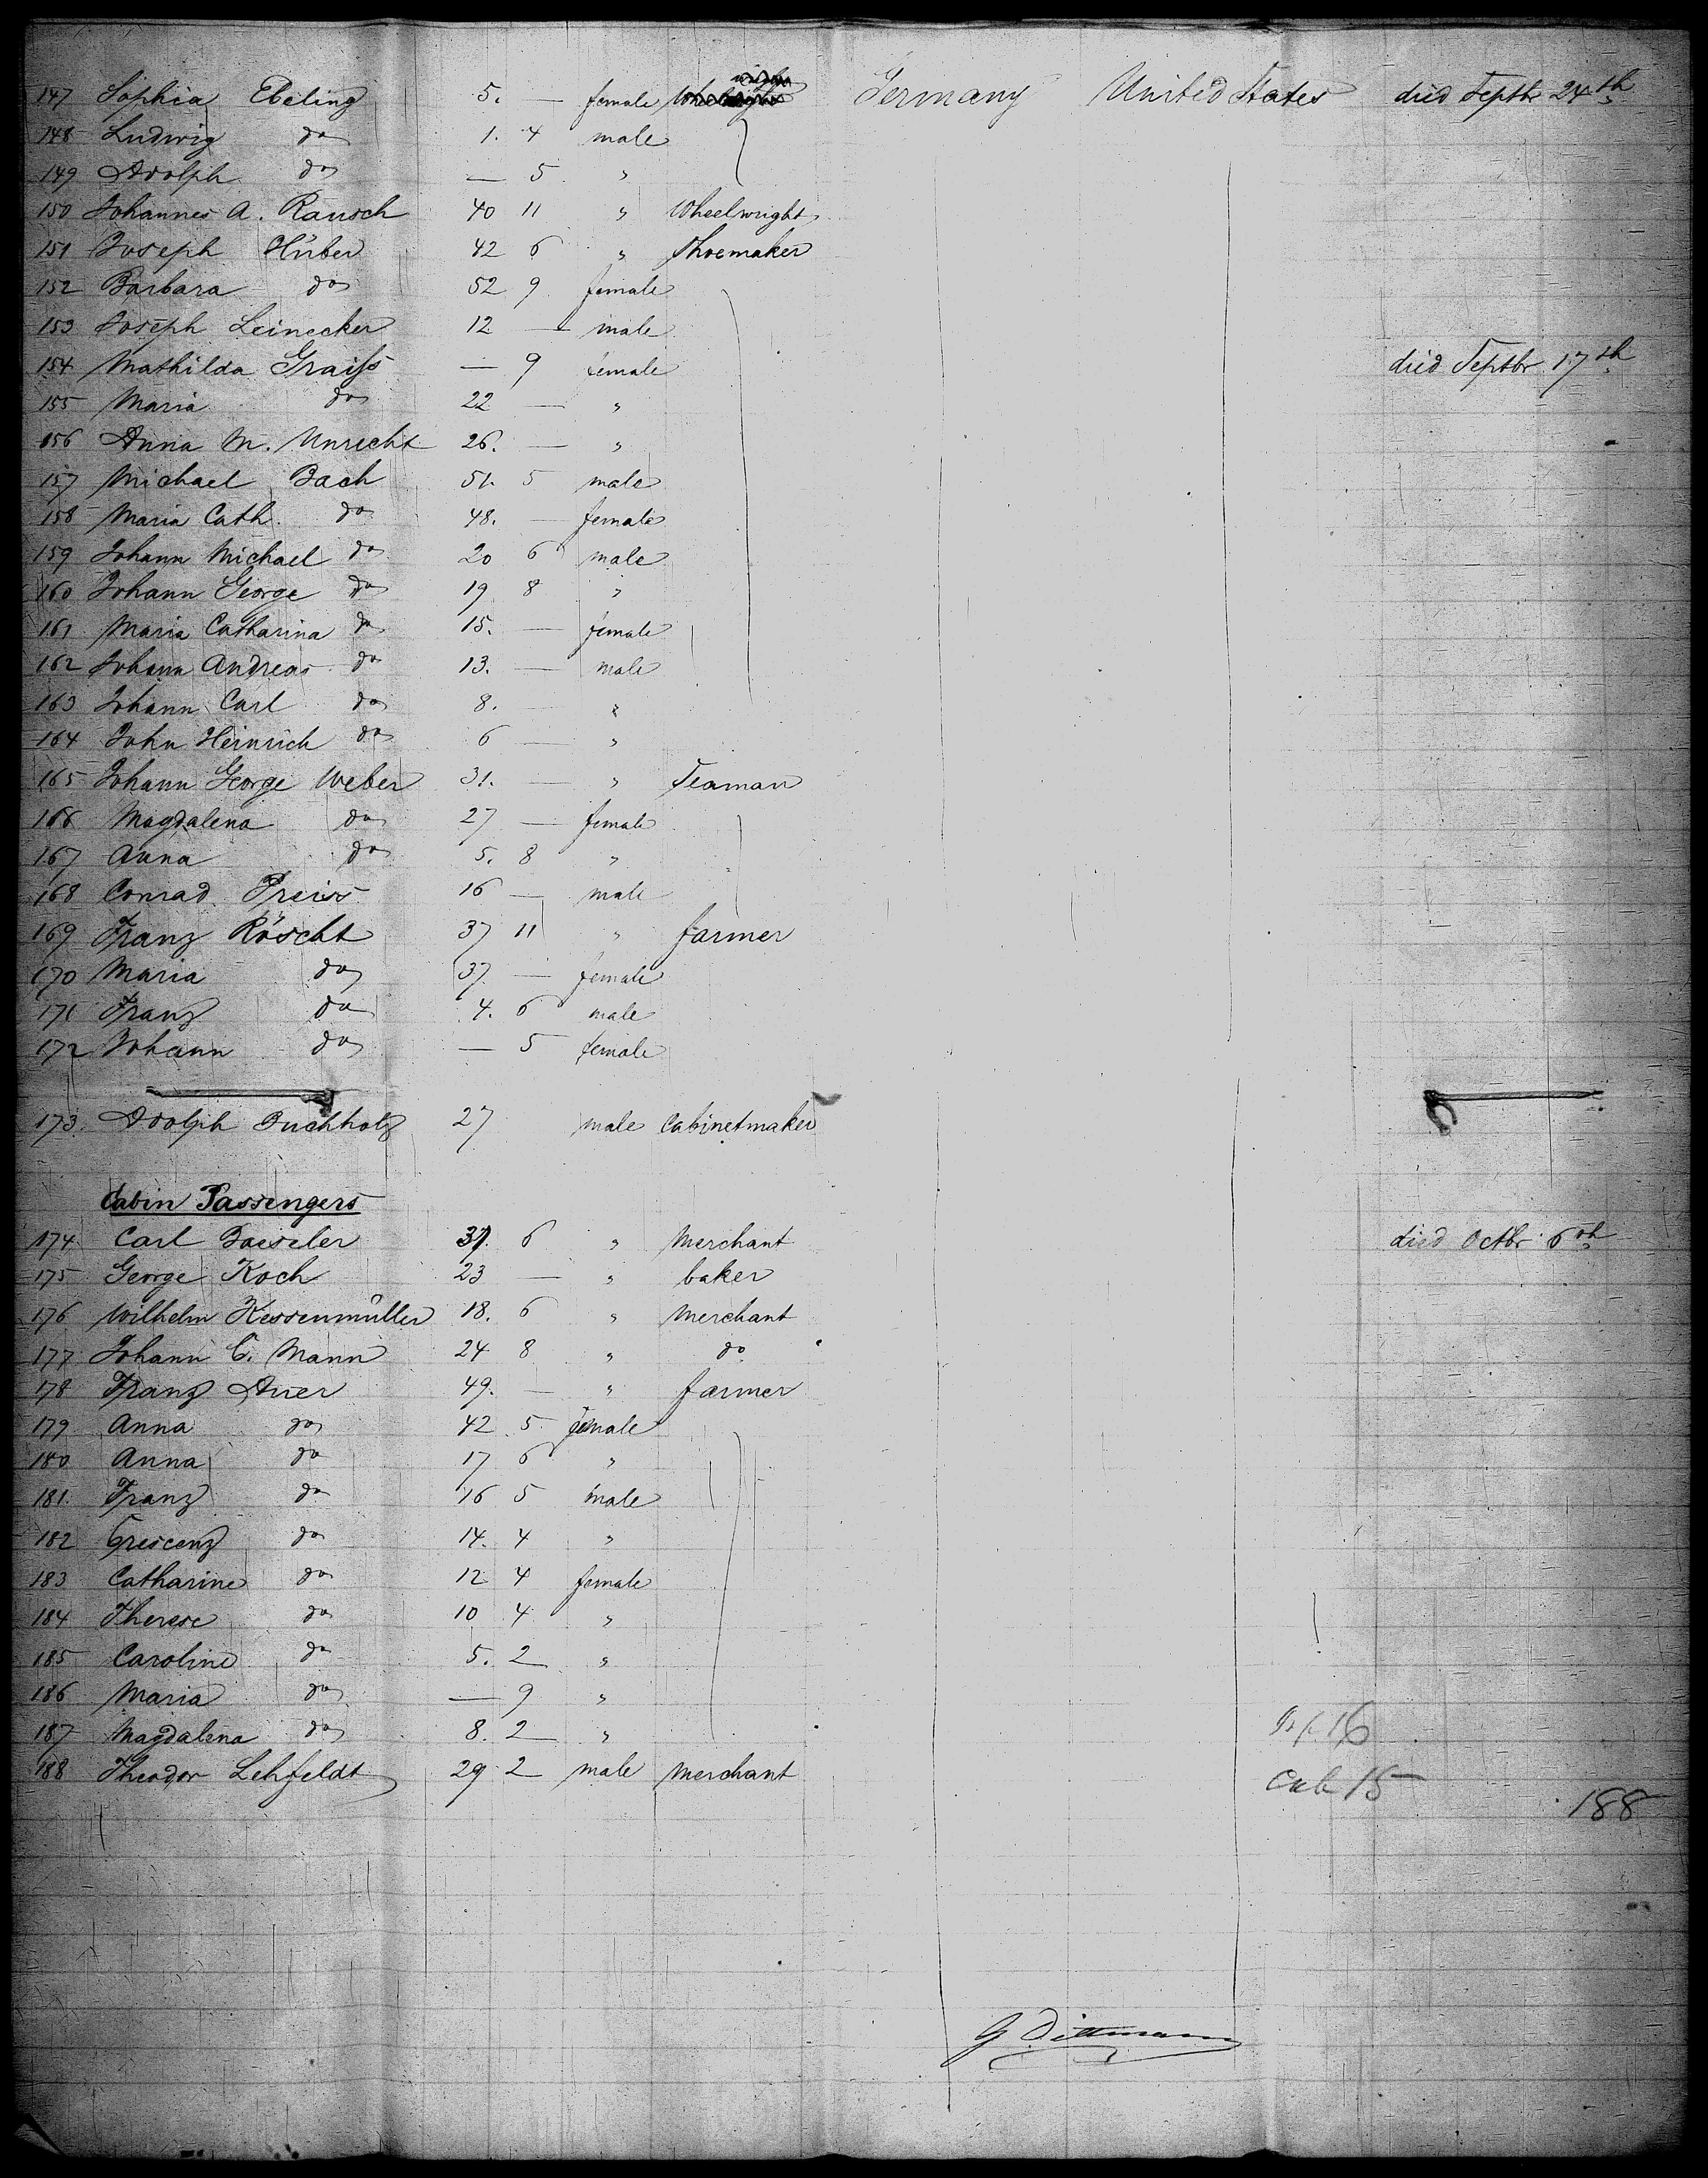 147 Sophia Ebeling 5. — female Germany United States died Septbr 24th
148 Ludwig do 1. 4 male
149 Adolph do — 5 "
150 Johannes A. Rausch 40 11 " Wheelwright
151 Joseph Hüber 42 6 " Shoemaker
152 Barbara do 52 9 female
153 Joseph Leinecker 12 — male
154 Mathilda Graiss — 9 female died Septbr 17th
155 Maria do 22 — "
156 Anna M. Unrecht 26. — "
157 Michael Bach 51. 5 male
158 Maria Cath. do 48. — female
159 Johann Michael do 20 6 male
160 Johann George do 19 8 "
161 Maria Catharina do 15. — female
162 Johann Andreas do 13. — male
163 Johann Carl do 8. — "
164 John Heinrich do 6 — "
165 Johann George Weber 31. — " Seaman
166 Magdalena do 27 — female
167 Anna do 5. 8 "
168 Conrad Preiss 16 — male
169 Franz Röscht 37 11 " farmer
170 Maria do 37. — female
171 Franz do 4. 6 male
172 Johann do — 5 female
173. Adolph Buchholz 27 male Cabinetmaker
Cabin Passengers
174 Carl Baeseler 37. 6 " Merchant died Octbr 6th
175 George Koch 23 — " baker
176 Wilhelm Kessenmüller 18. 6 " Merchant
177 Johann C. Mann 24 8 " do
178 Franz Auer 49. — " farmer
179 Anna do 42 5 female
180 Anna do 17 6 "
181. Franz do 16 5 male
182 Crescenz do 14. 4 "
183 Catharine do 12 4 female
184 Therese do 10 4 "
185 Caroline do 5. 2 "
186 Maria do — 9 "
187 Magdalena do 8. 2 "
188 Theodor Lehfeldt 29 2 male Merchant
Cab 15
188
G Dittmann